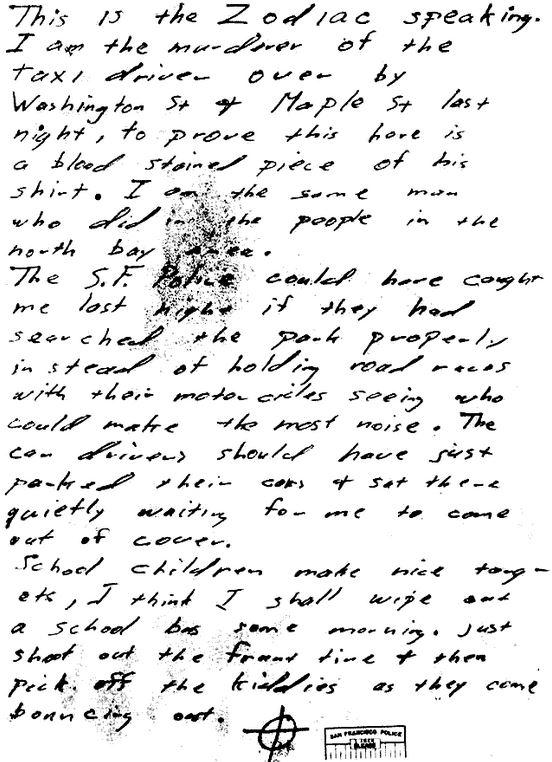 This is the Zodiac speaking.
I am the murderer of the
taxi driver over by
Washington St & Maple St last
night, to prove this here is
a blood stained piece of his
shirt. I am the same man
who did in the people in the
north bay area.
The S.F. Police could have caught
me last night if they had
searched the park properly
in stead of holding road races
with their motorcicles seeing who
could make the most noise. The
car drivers should have just
parked their cars & sat there
quietly waiting for me to come
out of cover.
School children make nice targ-
ets, I think I shall wipe out
a school bus some morning. Just
shoot out the frunt tire & then
pick off the kiddies as they come
bouncing out.
SAN FRANCISCO POLICE